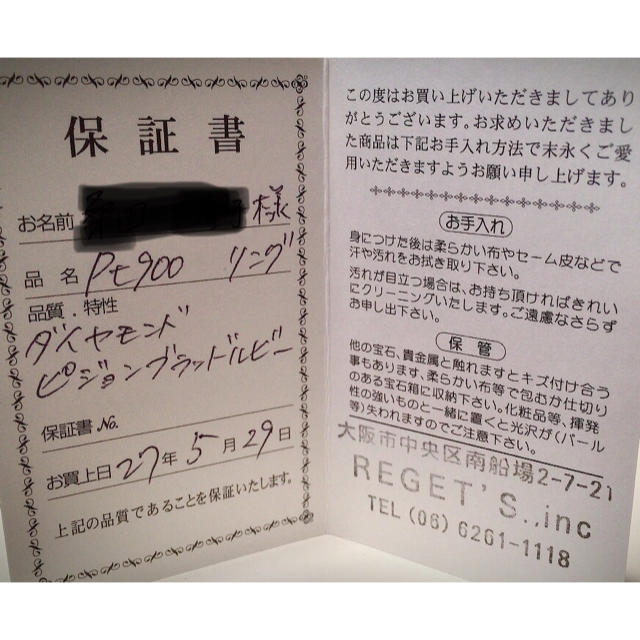 保証書
お名前 様
品名 Pt900 リング
品質.特性
ダイヤモンド
ピジョンブラッドルビー
保証書No.
お買上日 27年5月29日
上記の品質であることを保証いたします。
この度はお買い上げいただきましてあり
がとうございます。お求めいただきまし
た商品は下記お手入れ方法で末永くご愛
用いただきますようお願い申し上げます。
お手入れ
身につけた後は柔らかい布やセーム皮などで
汗や汚れをお拭き取り下さい。
汚れが目立つ場合は、お持ち頂ければきれい
にクリーニングいたします。ご遠慮なさらず
お申し出下さい。
保管
他の宝石、貴金属と触れますとキズ付け合う
事もあります、柔らかい布等で包むか仕切り
のある宝石箱に収納下さい。化粧品等、揮発
性の強いものと一緒に置くと光沢が(パール
等)失われますのでご注意下さい。
大阪市中央区南船場2-7-21
REGET'S.,inc
TEL (06) 6261-1118